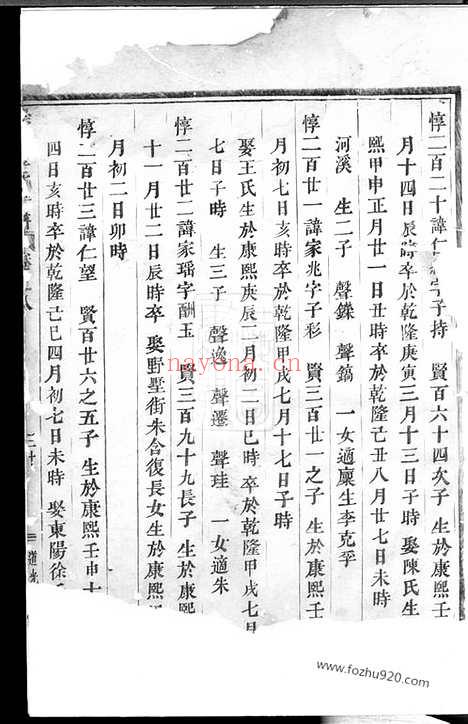 惇二百二十諱仁 字子持 賢百六十四次子 生於康熙壬
月十四日辰時卒於乾隆庚寅三月十三日子時 娶陳氏生
熙甲申正月廿一日丑時卒於乾隆己丑八月廿七日未時
河溪 生二子 聲鏶 聲鎬 一女適廩生李克孚
惇二百廿一諱家兆字子彩 賢三百廿一之子 生於康熙壬
月初七日亥時卒於乾隆甲戌七月十七日子時
娶王氏生於康熙庚辰二月初二日巳時 卒於乾隆甲戌七月
七日子時 生三子 聲逸 聲遷 聲珪 一女適朱
惇二百廿二諱家瑶字酬玉 賢三百九十九長子 生於康熙
十一月廿二日辰時卒 娶野墅街朱含復長女生於康熙
月初二日卯時
惇二百廿三諱仁望 賢百廿六之五子 生於康熙壬申十
四日亥時卒於乾隆己巳四月初七日未時 娶東陽徐
道光
nayona.cn
www.fozhu920.com